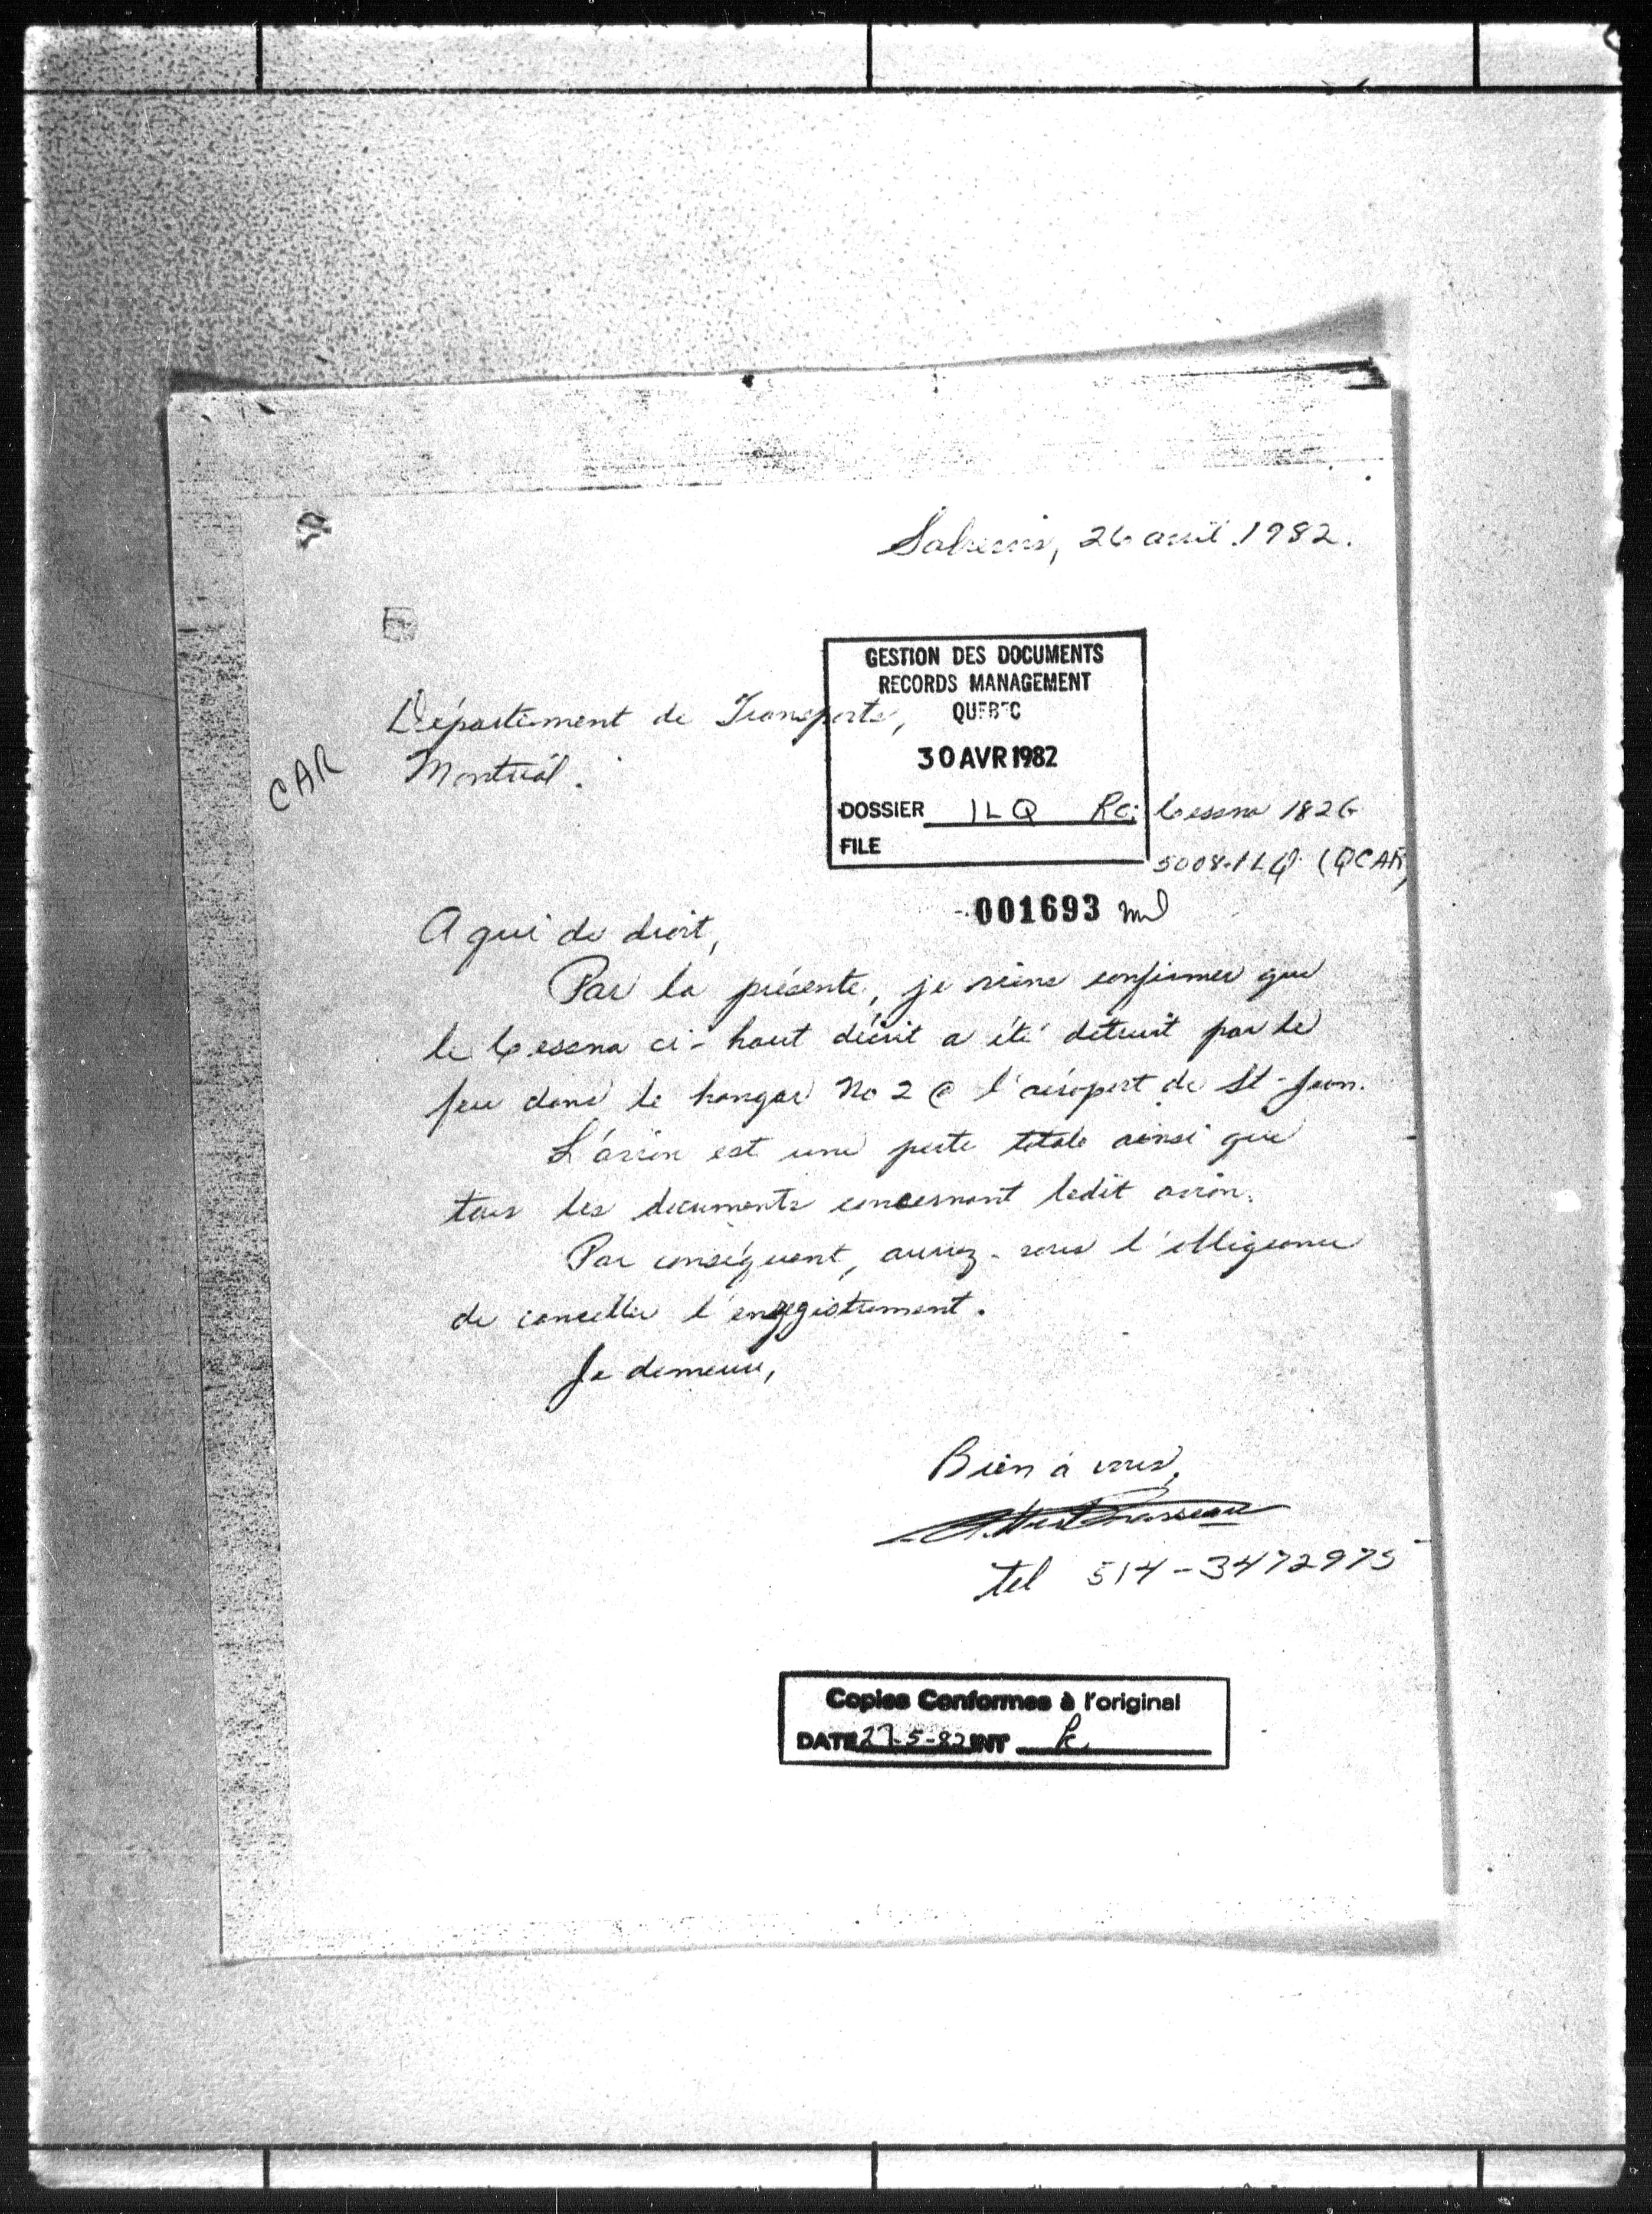 Sabrevois, 26 avril 1982.
GESTION DES DOCUMENTS
RECORDS MANAGEMENT
QUEBEC
30 AVR 1982
DOSSIER ILQ Re: Cessna 182G
FILE
5008-ILQ (QCAR)
001693
Département de Transports,
Montréal.
CAR
A qui de droit,
Par la présente, je viens confirmer que
le Cessna ci-haut décrit a été détruit par le
feu dans le hangar No 2 @ l'aéroport de St-Jean.
L'avion est une perte totale ainsi que
tous les documents concernant ledit avion.
Par conséquent, auriez-vous l'obligeance
de canceller l'enregistrement.
Je demeure,
Bien à vous,
tel 514-3472975
Copies Conformes à l'original
DATE 27-5-82 INT